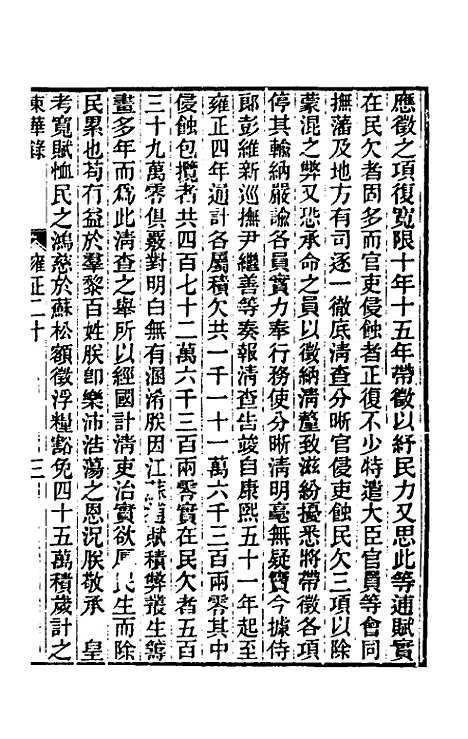 應徵之項復寬限十年十五年帶徵以紓民力又思此等逋賦實
在民欠者固多而官吏侵蝕者正復不少特遣大臣官員等會同
撫藩及地方有司逐一徹底清查分晰官侵吏蝕民欠三項以除
蒙混之弊又恐承命之員以徵納清釐致滋紛擾悉將帶徵各項
停其輸納嚴諭各員實力奉行務使分晰清明毫無疑竇今據侍
郎彭維新巡撫尹繼善等奏報清查告竣自康熙五十一年起至
雍正四年通計各屬積欠共一千一十一萬六千三百兩零其中
侵蝕包攬者共四百七十二萬六千三百兩零實在民欠者五百
三十九萬零俱覈對明白無有溷淆朕因江蘇逋賦積弊叢生籌
畫多年而為此清查之舉所以經國計清吏治實欲厚民生而除
民累也苟有益於羣黎百姓朕卽樂沛浩蕩之恩況朕敬承 皇
考寬賦恤民之鴻慈於蘇松額徵浮糧豁免四十五萬積歲計之
東華錄 雍正二十 三